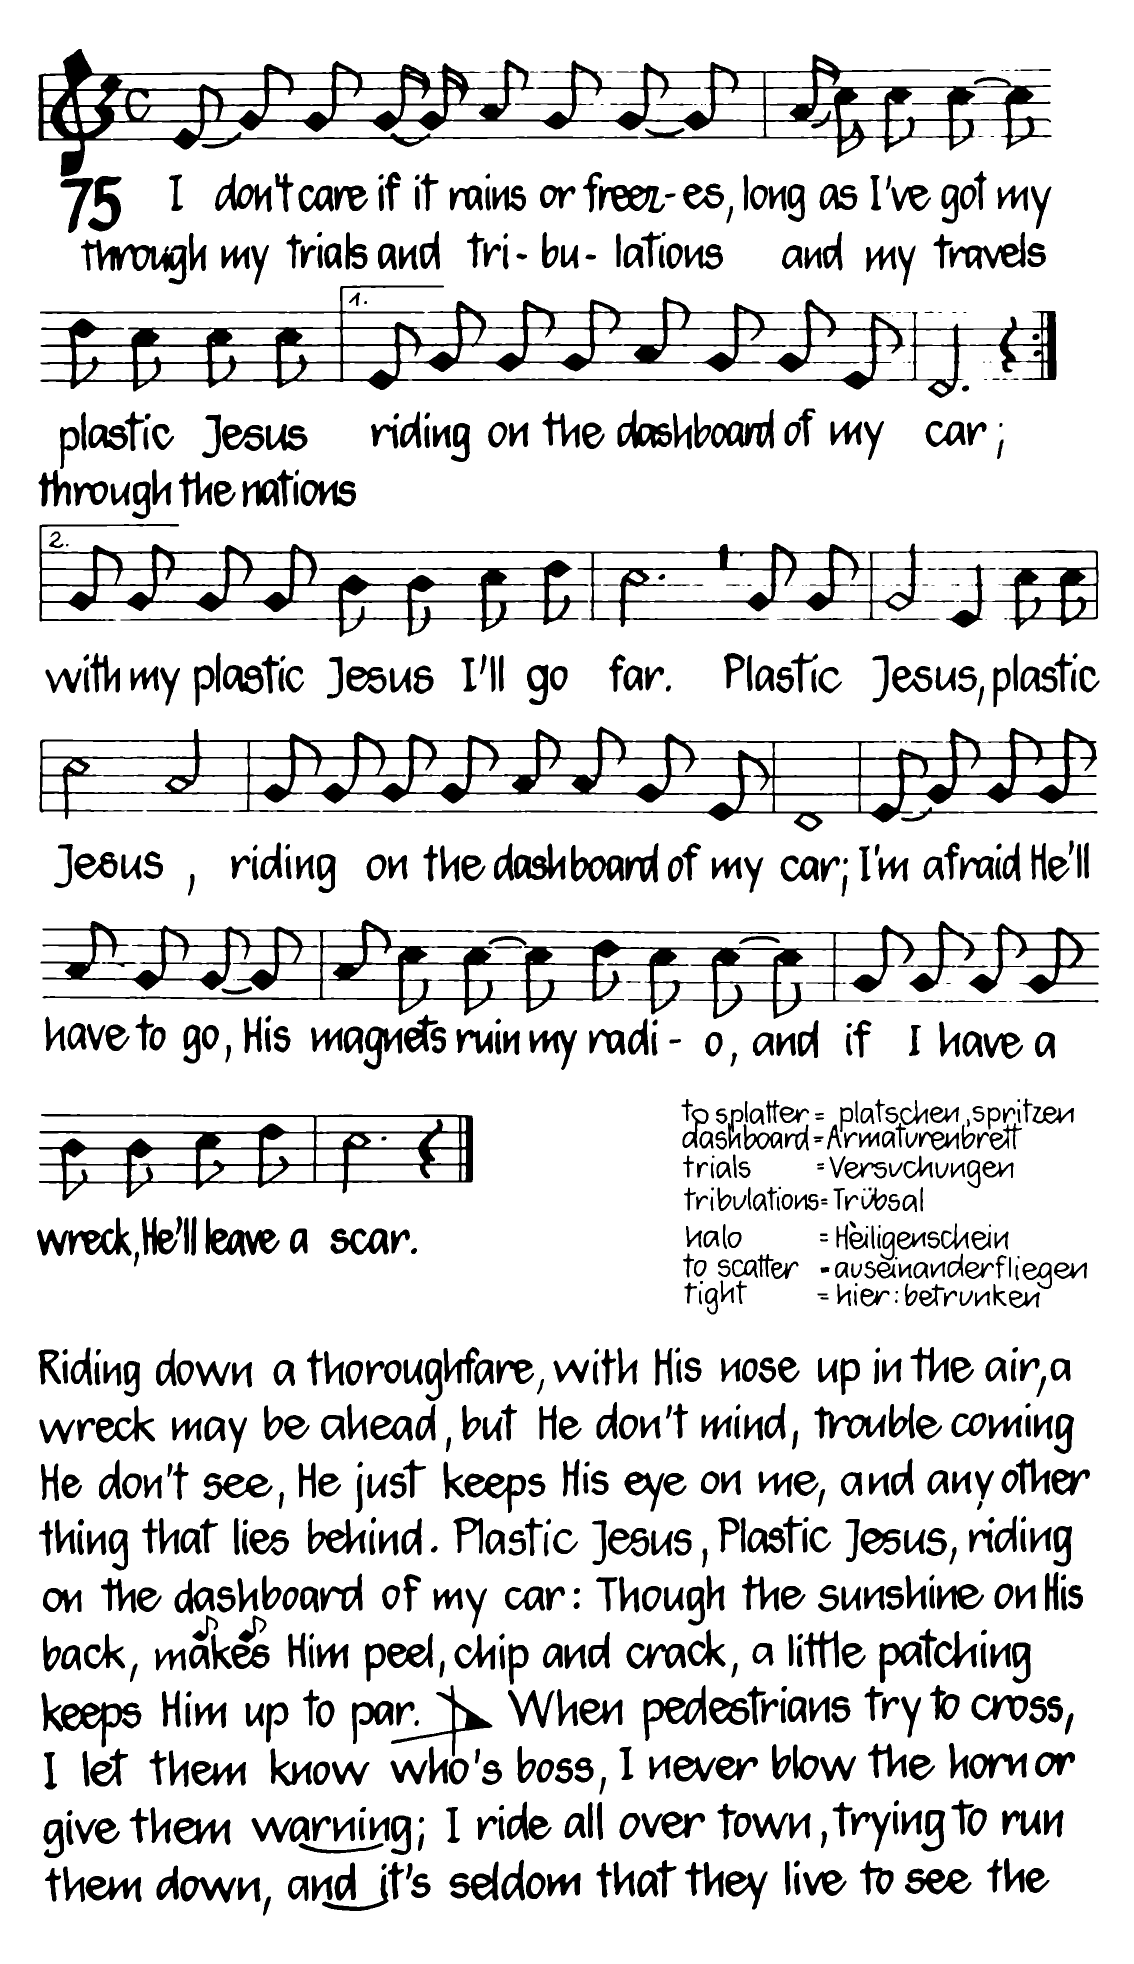 75 I don't care if it rains or freez-es, long as I've got my
through my trials and tri-bu-lations and my travels
1.
plastic Jesus riding on the dashboard of my car;
through the nations
2.
with my plastic Jesus I'll go far. Plastic Jesus, plastic
Jesus, riding on the dashboard of my car; I'm afraid He'll
have to go, His magnets ruin my radi-o, and if I have a
wreck, He'll leave a scar.
to splatter = platschen, spritzen
dashboard = Armaturenbrett
trials = Versuchungen
tribulations = Trübsal
halo = Heiligenschein
to scatter = auseinanderfliegen
tight = hier: betrunken
Riding down a thoroughfare, with His nose up in the air, a
wreck may be ahead, but He don't mind, trouble coming
He don't see, He just keeps His eye on me, and any other
thing that lies behind. Plastic Jesus, Plastic Jesus, riding
on the dashboard of my car: Though the sunshine on His
back, makes Him peel, chip and crack, a little patching
keeps Him up to par. When pedestrians try to cross,
I let them know who's boss, I never blow the horn or
give them warning; I ride all over town, trying to run
them down, and it's seldom that they live to see the